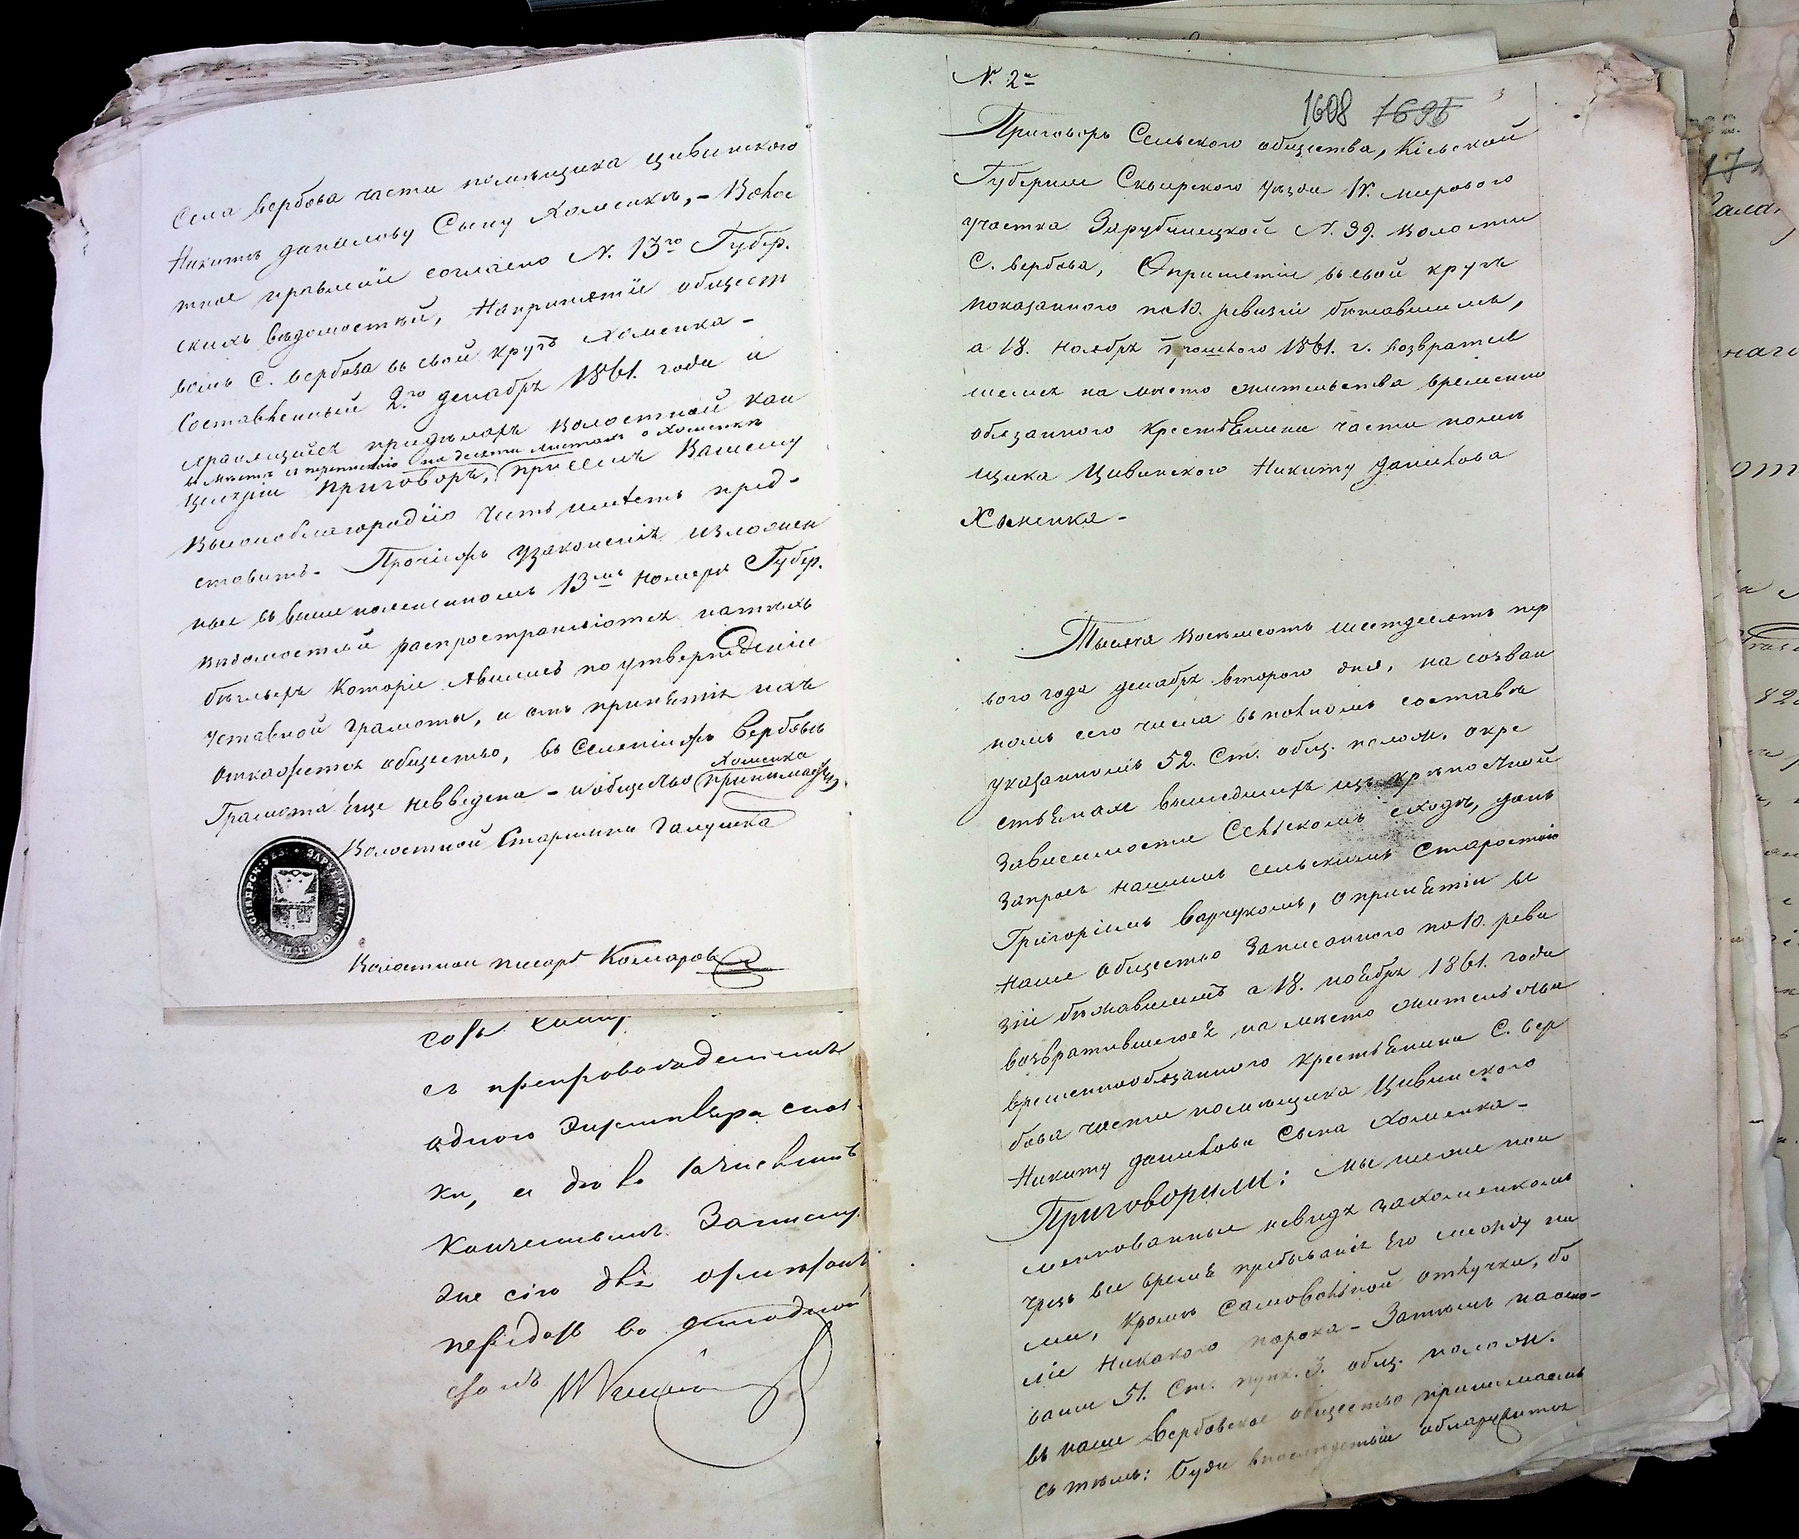 Села вербова части помѣщика цивинского
Никитѣ данилову Сыну Хоменкѣ, – Волос
тное правленіе согласно N. 13го Губер.
скихъ вѣдомостей, Напринятіе общест
вомъ С. вербова въ свой кругъ Хоменка –
Составленный 2.го декабря 1861. года и
хранящійся придѣлахъ Волостной кан
въ мѣстѣ съ перепискою на десяти листахъ о Хоменкѣ
целяріи приговоръ, при семъ Вашему
Высокоблагородію Честь имѣетъ пред-
ставить. Прочіихъ узаконенія изложен
ные въ вышепомянутомъ 13мъ номерѣ Губер.
вѣдомостей распространяются натѣхъ
бѣглыхъ Которіе Явились по утвержденіи
уставной грамоты, и отъ принятія ихъ
откажется общество, въ Селеніихъ Вербовѣ
Грамота Еще невведена – и общество Хоменка принимаетъ,
Волостной Старшина Галушка
Волостной писарь Комаров
съ препровожденіемъ
одного Экземпляра спис
ки, а дѣло
Конченнымъ Записку
передать во
столъ
N. 2й
1608 1695
Приговоръ Сельского общества, Кіевской
Губерніи Сквирского уѣзда IV. мирового
участка Зарубинецкой N. 39. волости
С. вербова, Опринятіи въ свой кругъ
показанного по 10. ревизіи бѣжавшимъ,
а 18. ноября прошлого 1861. г. возвратив
шемся на мѣсто жительства временно
обязанного Крестьянина части помѣ
щика Цивинского Никиту данилова
Хоменка –
Тысяча восемсотъ шестдесятъ пер
вого года декабря второго дня, на созван
номъ сего числа въ полномъ составѣ
указанномъ 52. Ст. общ. полож. окре
стьянахъ вышедшихъ изъ крѣпостной
Зависимости Сельскомъ сходѣ, данъ
Запросъ нашимъ сельскимъ Старостою
Григоріемъ варчукомъ, о принятіи въ
наше общество Записанного по 10. реви
зіи бѣжавшимъ а 18. ноября 1861. года
возвратившегося на мѣсто жительства
временнообязанного крестьянина С. вер
бова части помѣщика Цивинского
Никиту данилова Сына Хоменка –
Приговорили: мы ниже пои
менованные невидя захоменкомъ
чрезъ все время пребыванія Его между на
ми, кромѣ самовольной отлучки, бо
лѣе Никакого порока – Затѣмъ наосно-
ваніи 51. Ст. пунк. 3. общ. полож.
въ наше Вербовское общество принимаемъ
съ тѣмъ: буде впослѣдствіи обнаружится